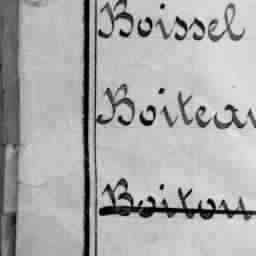 Boissel
Boiteau
Boitou